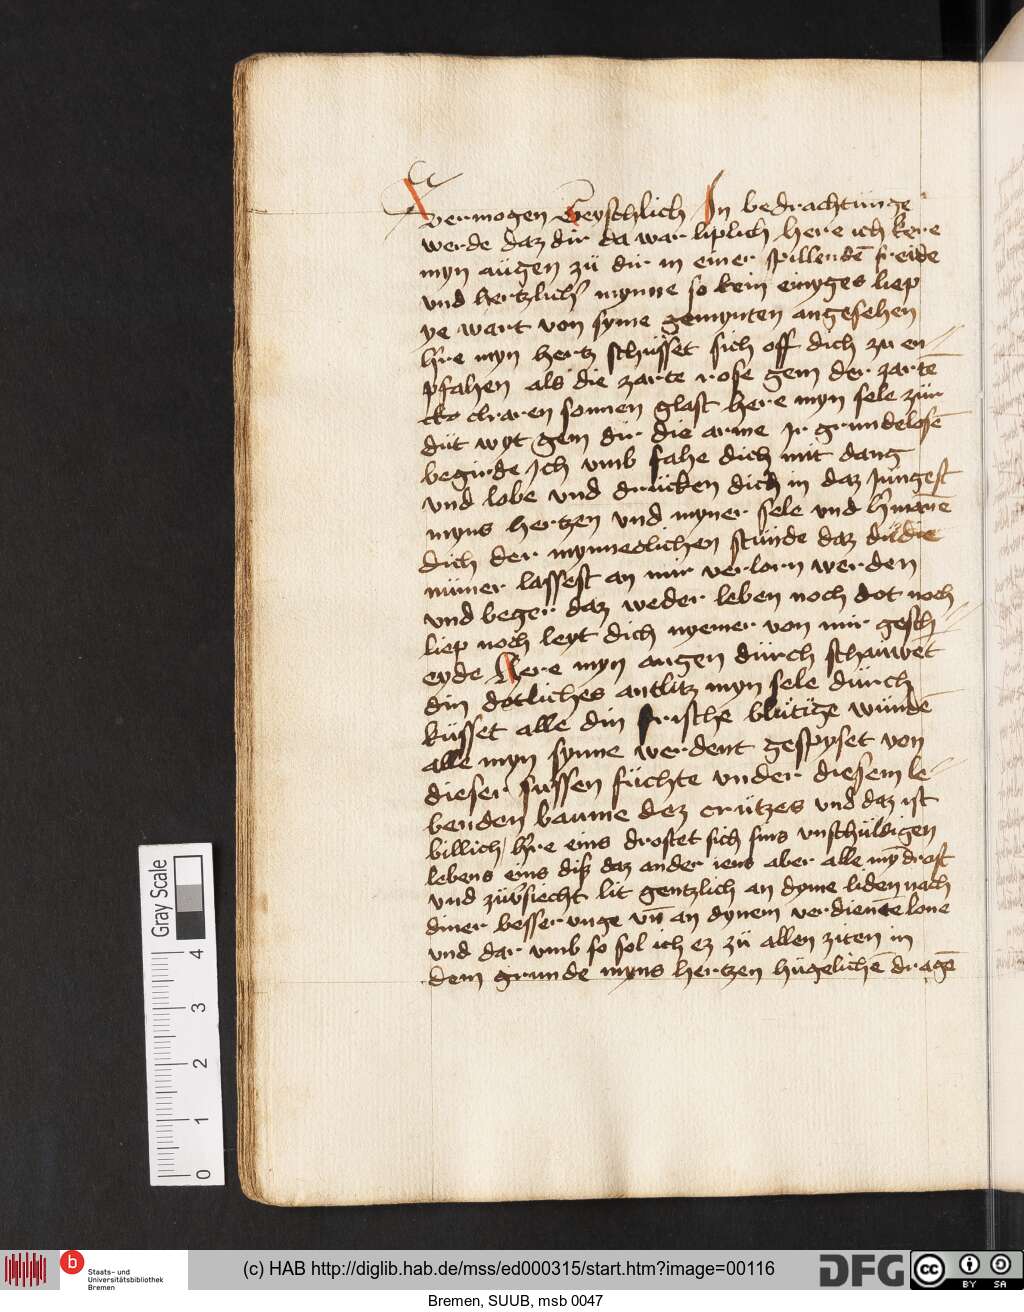 vermogen Geyschlich In bedrachtunge
werde daz dir da war liplich here ich kere
myn augen zü dir in einer spillendē freide
und hertzlichʼ mynne so kein einyges liep
ye wart von syme gemynten angesehen
hʼre myn hertz schüsset sich off dich zu en
pfahen als die zarte rose gem der zartē
claren sonnen glast here myn sele zür
düt wyt gem dir die arme Ir grundelosē
begirde Ich vmb fahe dich mit dang
vnd lobe vnd drücken dich in daz Jungest
myns hertzen vnd myner sele vnd hʼmanē
dich der mynneclichen stünde daz dü die
nümer lassest an mir verlorn werden
vnd beger daz weder leben noch dot noch
liep noch leyt dich nyemer von mir gesch
eyde Here myn augen dürch schauwēt
din dotliches antlitz myn sele dürch
küsset alle din frische blütige wündē
alle myn synne werdent gespyset von
dieser sussen füchte vnder diesem le
benden baume dez crützes vnd daz ist
billich hʼre eins drostet sich sins vnschuldigen
lebens eins diß daz ander iens aber alle mȳ drost
vnd züvʼsiecht lit gentzlich an dyme liden nach
diner besser unge vn̄ an dynem verdientē lone
vnd dar vmb so sol ich ez zü allen ziten in
dem grunde myns hertzen hügelichē dragē
Gray Scale
4
3
2
1
0
b
Staats- und
Universitätsbibliothek
Bremen
(c) HAB http://diglib.hab.de/mss/ed000315/start.htm?image=00116
DFG
cc
BY
SA
Bremen, SUUB, msb 0047